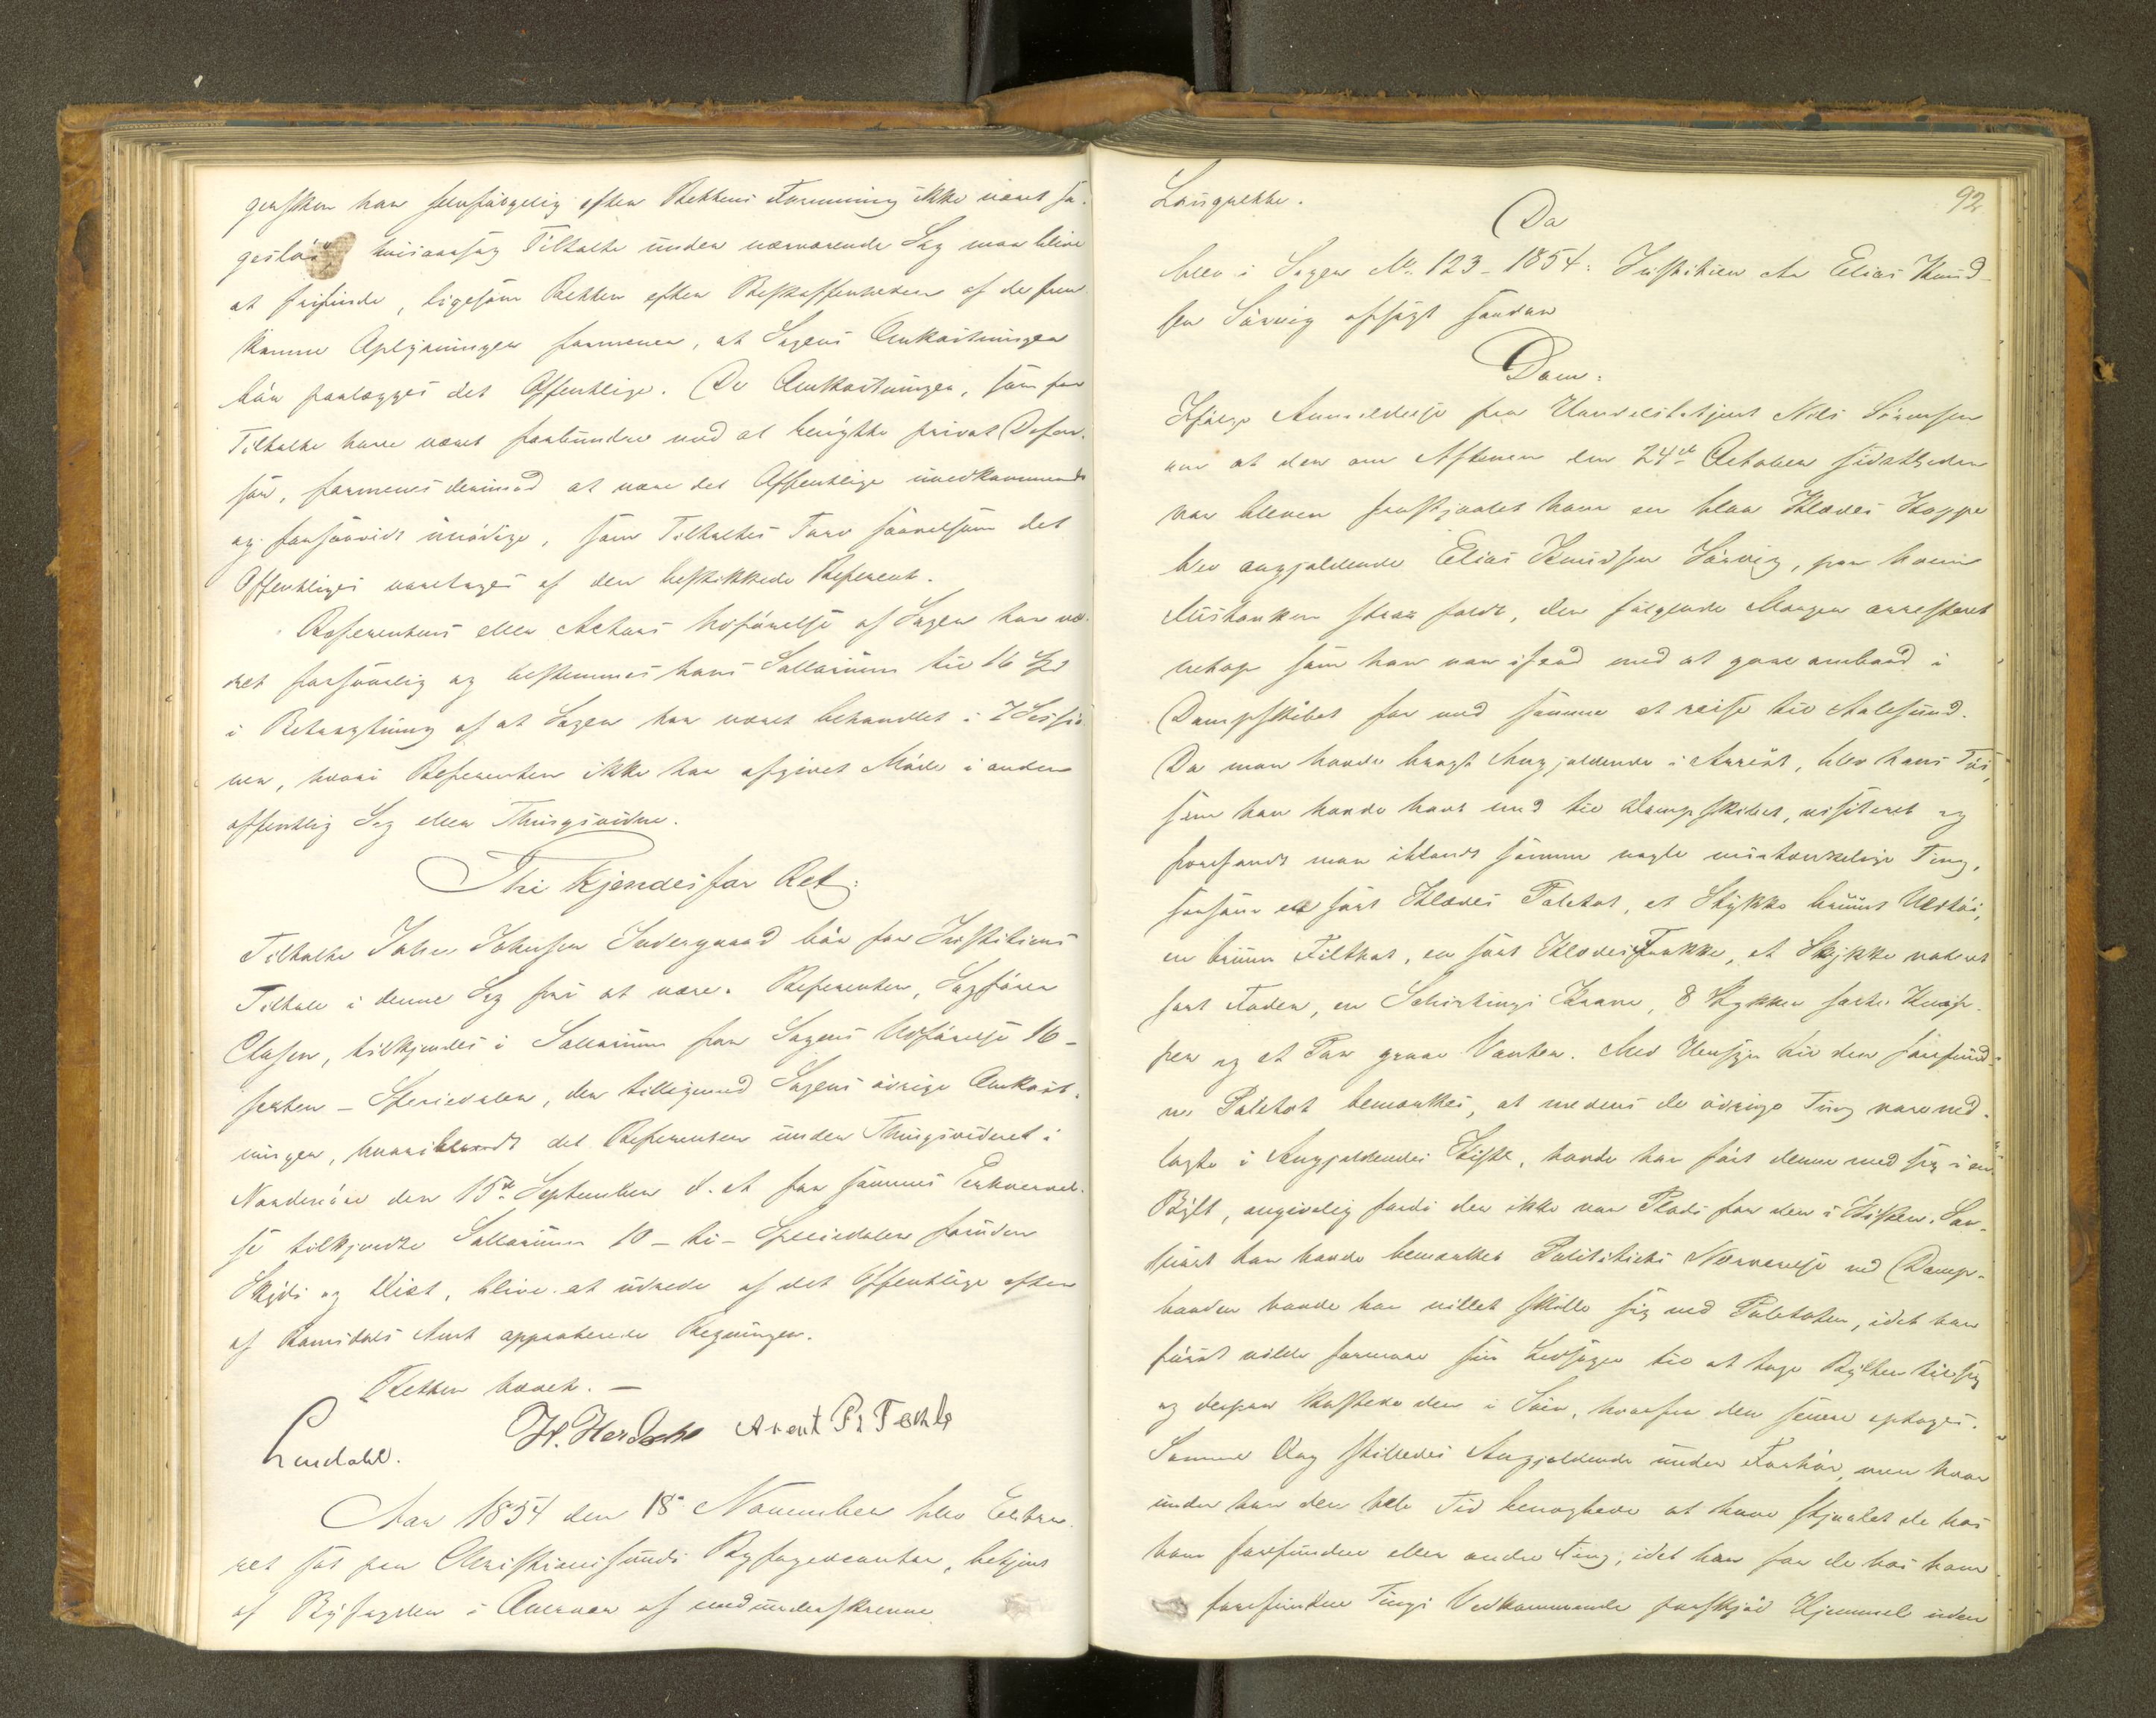 gersken har selvfølgelig efter Rettens Formening ikke været sø-
gesløs, hvisaarsag Tiltalte under nærværende Sag maa blive
at frifinde, ligesom Retten efter Beskaffenheden af de frem-
komne Oplysninger formener, at Sagens Omkostninger
bør paalægges det Offentlige. De Omkostninger, som for
Tiltalte have været forbundne med at benytte privat Defen-
sor, formenes derimod at være det Offentlige uvedkommende
og forsaavidt unødige, som Tiltaltes Tarv saavelsom det
Offentliges varetages af den beskikkede Referent.
Referentens eller Actors Udførelse af Sagen har væ-
ret forsvarlig og bestemmes hans Sallarium til 16 Spd
i Betragtning af at Sagen har været behandlet i 7 Sessio-
ner, hvori Referenten ikke har afgivet Møde i anden
offentlig Sag eller Thingsvidne.
Thi kjendes for Ret:
Tiltalte Johan Johnsen Sødergaard bør for Justitiens
Tiltale i denne Sag fri at være. Referenten, Sagfører
Clasen, tilkjendes i Sallarium for Sagens Udførelse 16 –
sexten – Speciedaler, der tilligemed Sagens øvrige Omkost-
ninger, hvoriblandt det Referenten under Thingsvidnet i
Nordmøre den 15de September d. A. for sammes Erhvervel-
se tilkjendte Sallarium 10 – ti – Speciedaler foruden
Skyds og Diæt, blive at udrede af det Offentlige efter
af Romsdals Amt approberede Regninger.
Retten hævet. –
Lindahl. H. Herdahl Arent Pr
Aar 1854 den 18 November blev Extra-
ret sat paa Christianssunds Byfogedcontor, betjent
af Byfogden i Overvær af medunderskrevne
92
Laugrette.
Da
blev i Sagen No. 123 – 1854: Justitien ctr Elias Knud-
sen Sørvig afsagt saadan
Dom:
Ifølge Anmeldelse fra Handelsbetjent Nils Sørensen
om at der om Aftenen den 24de October sidstleden
var bleven frastjaalet ham en blaa Klædes Kappe
blev angjældende Elias Knudsen Sørvig, paa hvem
Mistanken strax faldt, den følgende Morgen arresteret
netop som han var ifærd med at gaae ombord i
Dampskibet for med samme at reise til Aalesund.
Da man havde bragt Angjældende i Arrest, blev hans Tøi,
som han havde havt med til Dampskibet, visiteret og
forefandt man iblandt samme nogle mistænkelige Ting,
saasom en sort Klædes Paletot, et Stykke bruunt Uldtøi,
en bruun Filthat, en sort Klædes Frakke, et Stykke vateret
sort Foder, en Schirtings Krave, 8 Stykker sorte Knap-
per og et Par graae Vanter. Med Hensyn til den forefund-
ne Paletot bemærkes, at medens de øvrige Ting vare ned-
lagte i Angjældendes Kiste, havde han ført denne med sig i en
Bylt, angivelig fordi der ikke var Plads for den i Kisten. Saa-
snart han havde bemærket Politiets Nærværelse ved Damp-
baaden havde han villet skille sig ved Paletoten, idet han
først vilde formaae sin Ledsager til at tage Bylten til sig
og derpaa kastede den i Søen, hvorfra den senere optoges.
Samme Dag stilledes Angjældende under Forhør, men hvor-
under han den hele Tid benægtede at have stjaalet de hos
ham forefundne eller andre Ting, idet han for de hos ham
forefundne Tings Vedkommende paaskjød Hjemmel uden